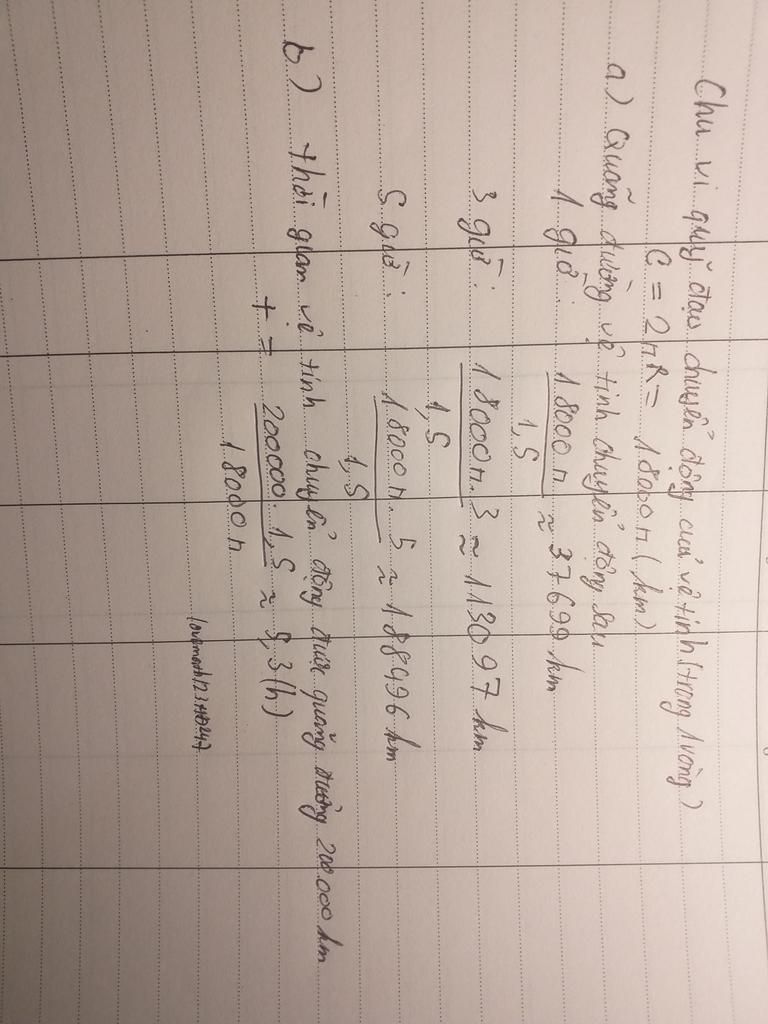 Chu vi quỹ đạo chuyển động của vệ tinh (trong 1 vòng)
C = 2πR = 18000π (km)
a) Quãng đường vệ tinh chuyển động sau
1 giờ: 18000π / 1,5 ≈ 37699 km
3 giờ: 18000π.3 / 1,5 ≈ 113097 km
5 giờ: 18000π.5 / 1,5 ≈ 188496 km
b) thời gian vệ tinh chuyển động được quãng đường 200.000 km
t = 200000.1,5 / 18000π ≈ 5,3 (h)